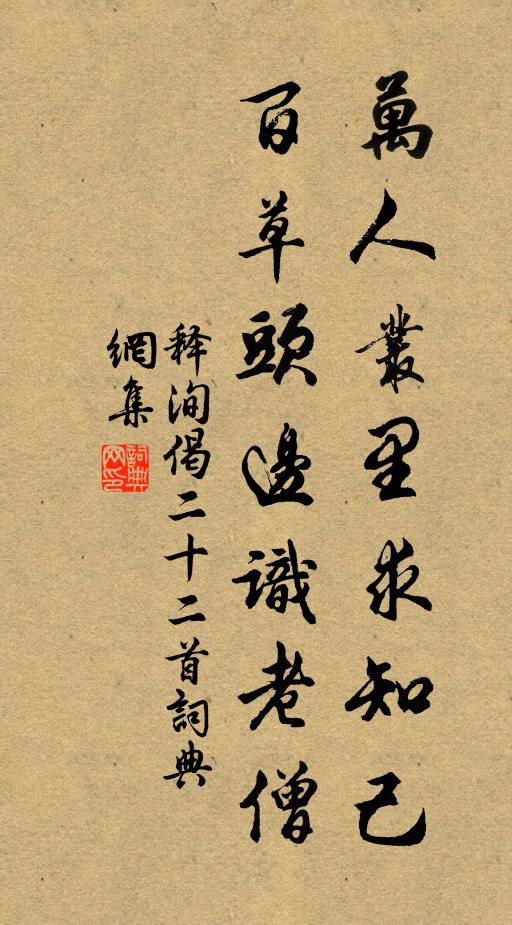 萬人叢里求知己
百草頭邊識老僧
释洵偈二十二首詞典
網集
詞典
网印